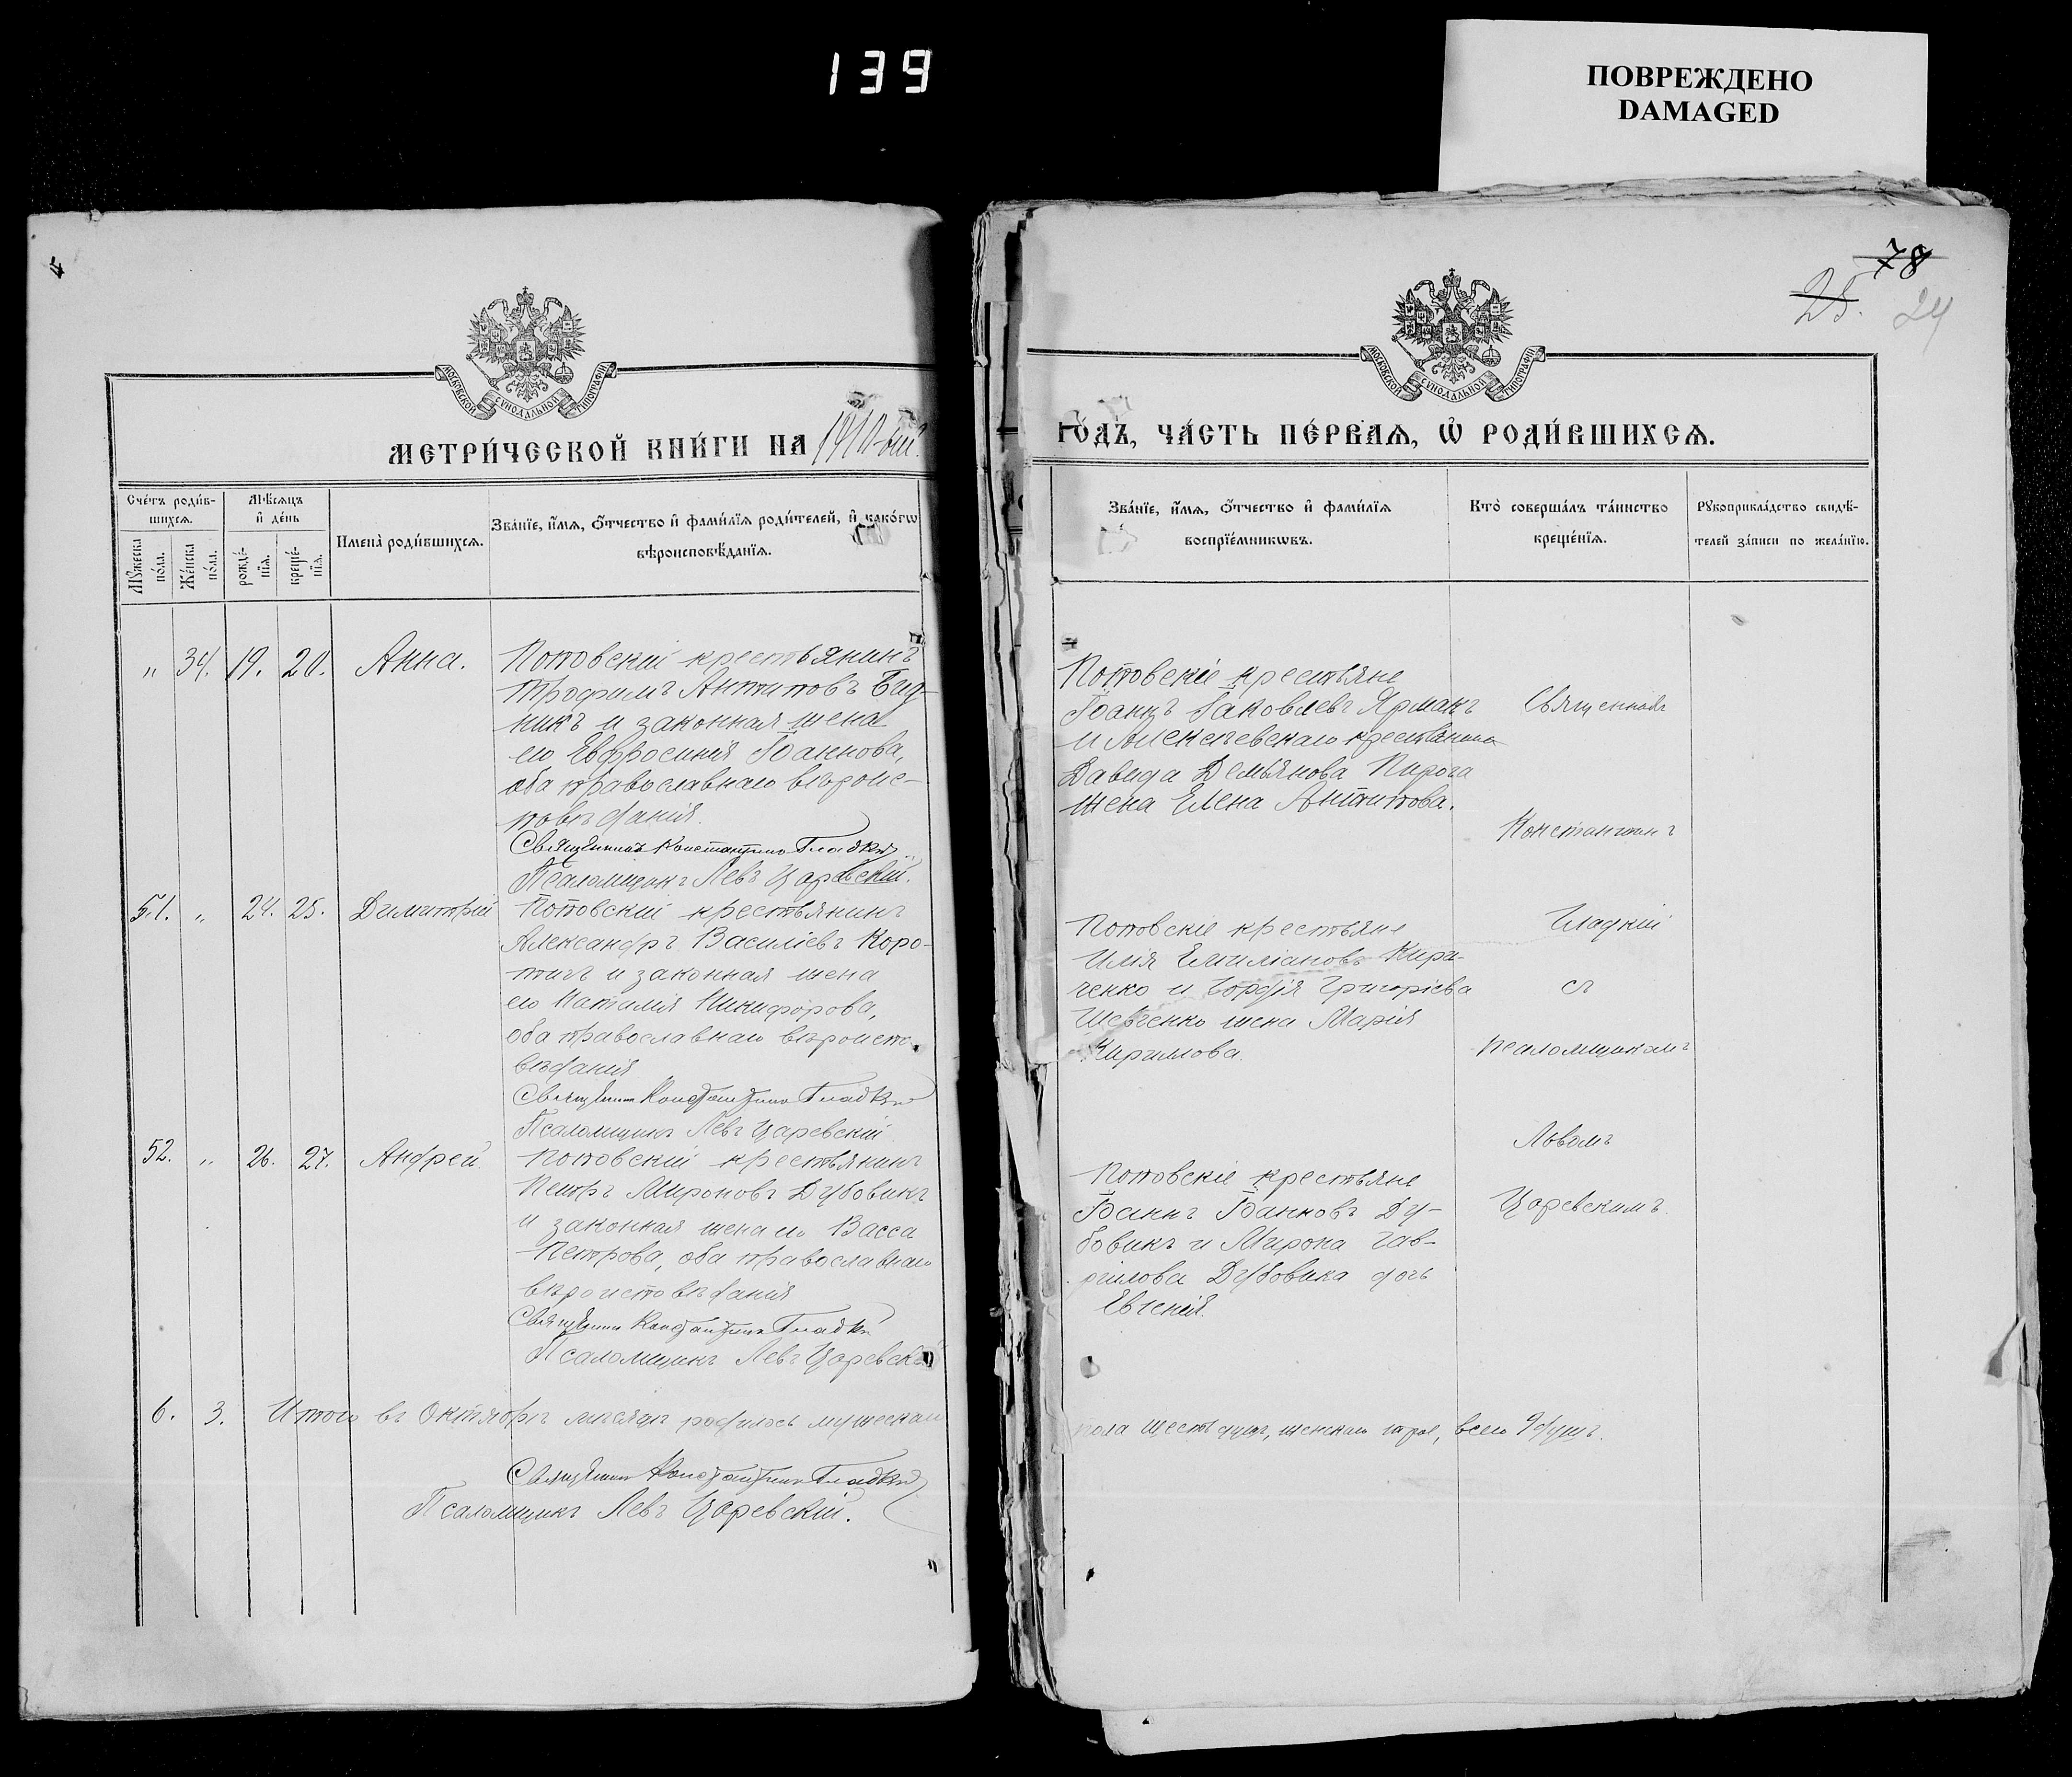 139
ПОВРЕЖДЕНО
DAMAGED
78
25. 24
МОСКОВСКОЙ СѴНОДАЛЬНОЙ ТИПОГРАФІИ
МОСКОВСКОЙ СѴНОДАЛЬНОЙ ТИПОГРАФІИ
МЕТРИ́ЧЕСКОЙ КНИ́ГИ НА 1910-ый
ГО́ДЪ, ЧА́СТЬ ПЕ́РВАѦ, Ѡ҆ РОДИ́ВШИХСѦ.
Сче́тъ роди́вшихсѧ.
Мꙋ́жеска по́ла.
Же́нска по́ла.
Мѣ́сѧцъ и҆ де́нь
рожде́нїѧ.
креще́нїѧ.
Имена̀ роди́вшихсѧ.
Зва́нїе, и҆́мѧ, ѻ҆́тчество и҆ фами́лїѧ роди́телей, и҆ како́гѡ
вѣроисповѣ́данїѧ.
Зва́нїе, и҆́мѧ, ѻ҆́тчество и҆ фами́лїѧ
воспрїе́мникѡвъ.
Кто̀ соверша́лъ та́инство
креще́нїѧ.
Рꙋкоприкла́дство свидѣ́-
телей за́писи по жела́нїю.
" 34. 19. 20. Анна.
Поповскій крестьянинъ
Трофимъ Антиповъ Бид-
никъ и законная жена
его Евфросинія Іоаннова,
оба православнаго вѣроис-
повѣданія.
Священникъ Константинъ Гладкій
Псаломщикъ Левъ Царевскій.
Поповскіе крестьяне
Іоаннъ Іаковлевъ Ярмакъ
и Алексѣевскаго крестьянина
Давида Демьянова Пирога
жена Елена Антипова.
51. " 24. 25. Димитрій
Поповскій крестьянинъ
Александръ Василіевъ Коро-
тичъ и законная жена
его Наталія Никифорова,
оба православнаго вѣроиспо-
вѣданія
Священникъ Константинъ Гладкій
Псаломщикъ Левъ Царевскій
Поповскіе крестьяне
Илія Емиліановъ Кири-
ченко и Гордія Григоріева
Шевченко жена Марія
Кириллова.
52. " 26. 27. Андрей.
Поповскій крестьянинъ
Петръ Мироновъ Дубовикъ
и законная жена его Васса
Петрова, оба православнаго
вѣроисповѣданія
Священникъ Константинъ Гладкій
Псаломщикъ Левъ Царевскій
Поповскіе крестьяне
Іоаннъ Іоанновъ Ду-
бовикъ и Мирона Гав-
риілова Дубовика дочь
Евгенія.
Священникъ
Константинъ
Гладкій
съ
псаломщикомъ
Львомъ
Царевскимъ.
6. 3. Итого въ Октябрѣ мѣсяцѣ родилось мужескаго
пола шесть душъ, женскаго трое, всего 9 душъ.
Священникъ Константинъ Гладкій
Псаломщикъ Левъ Царевскій.